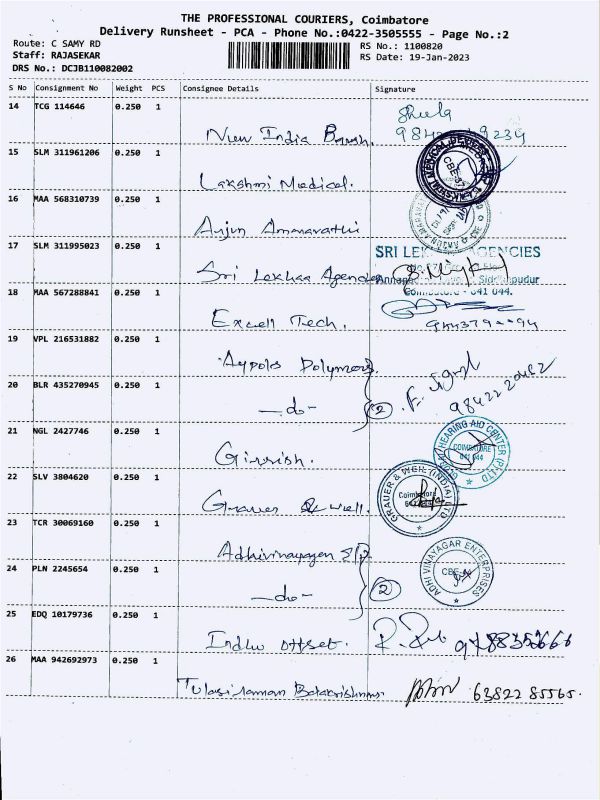 THE PROFESSIONAL COURIERS, Coimbatore
Delivery Runsheet - PCA - Phone No.:0422-3505555 - Page No.:2
Route: C SAMY RD
RS No.: 1100820
Staff: RAJASEKAR
RS Date: 19-Jan-2023
DRS No.: DCJB110082002
S No Consignment No Weight PCS Consignee Details Signature
14 TCG 114646 0.250 1
Sheela
New India
15 SLM 311961206 0.250 1
Lakshmi Medical.
16 MAA 568310739 0.250 1
Anjun Ammarathi
17 SLM 311995023 0.250 1
SRI LEKHAA AGENCIES
Sri Lekhaa Agencies
Siddhapudur
Coimbatore - 641 044.
18 MAA 567288841 0.250 1
Excell Tech.
19 VPL 216531882 0.250 1
Aypols Polymers
20 BLR 435270945 0.250 1
-do- 2
21 NGL 2427746 0.250 1
HEARING AID CENTER (P) LTD
COIMBATORE
641 044
Girrish.
22 SLV 3804620 0.250 1
GRAUER & WEIL (INDIA) LTD
Coimbatore
Grauer & well.
23 TCR 30069160 0.250 1
Adhivinayagan
24 PLN 2245654 0.250 1
ADHI VINAYAGAR ENTERPRISES
-do- 2
25 EDQ 10179736 0.250 1
Indhu offset.
26 MAA 942692973 0.250 1
Tulasiraman Balakrishnan 63822 85565.